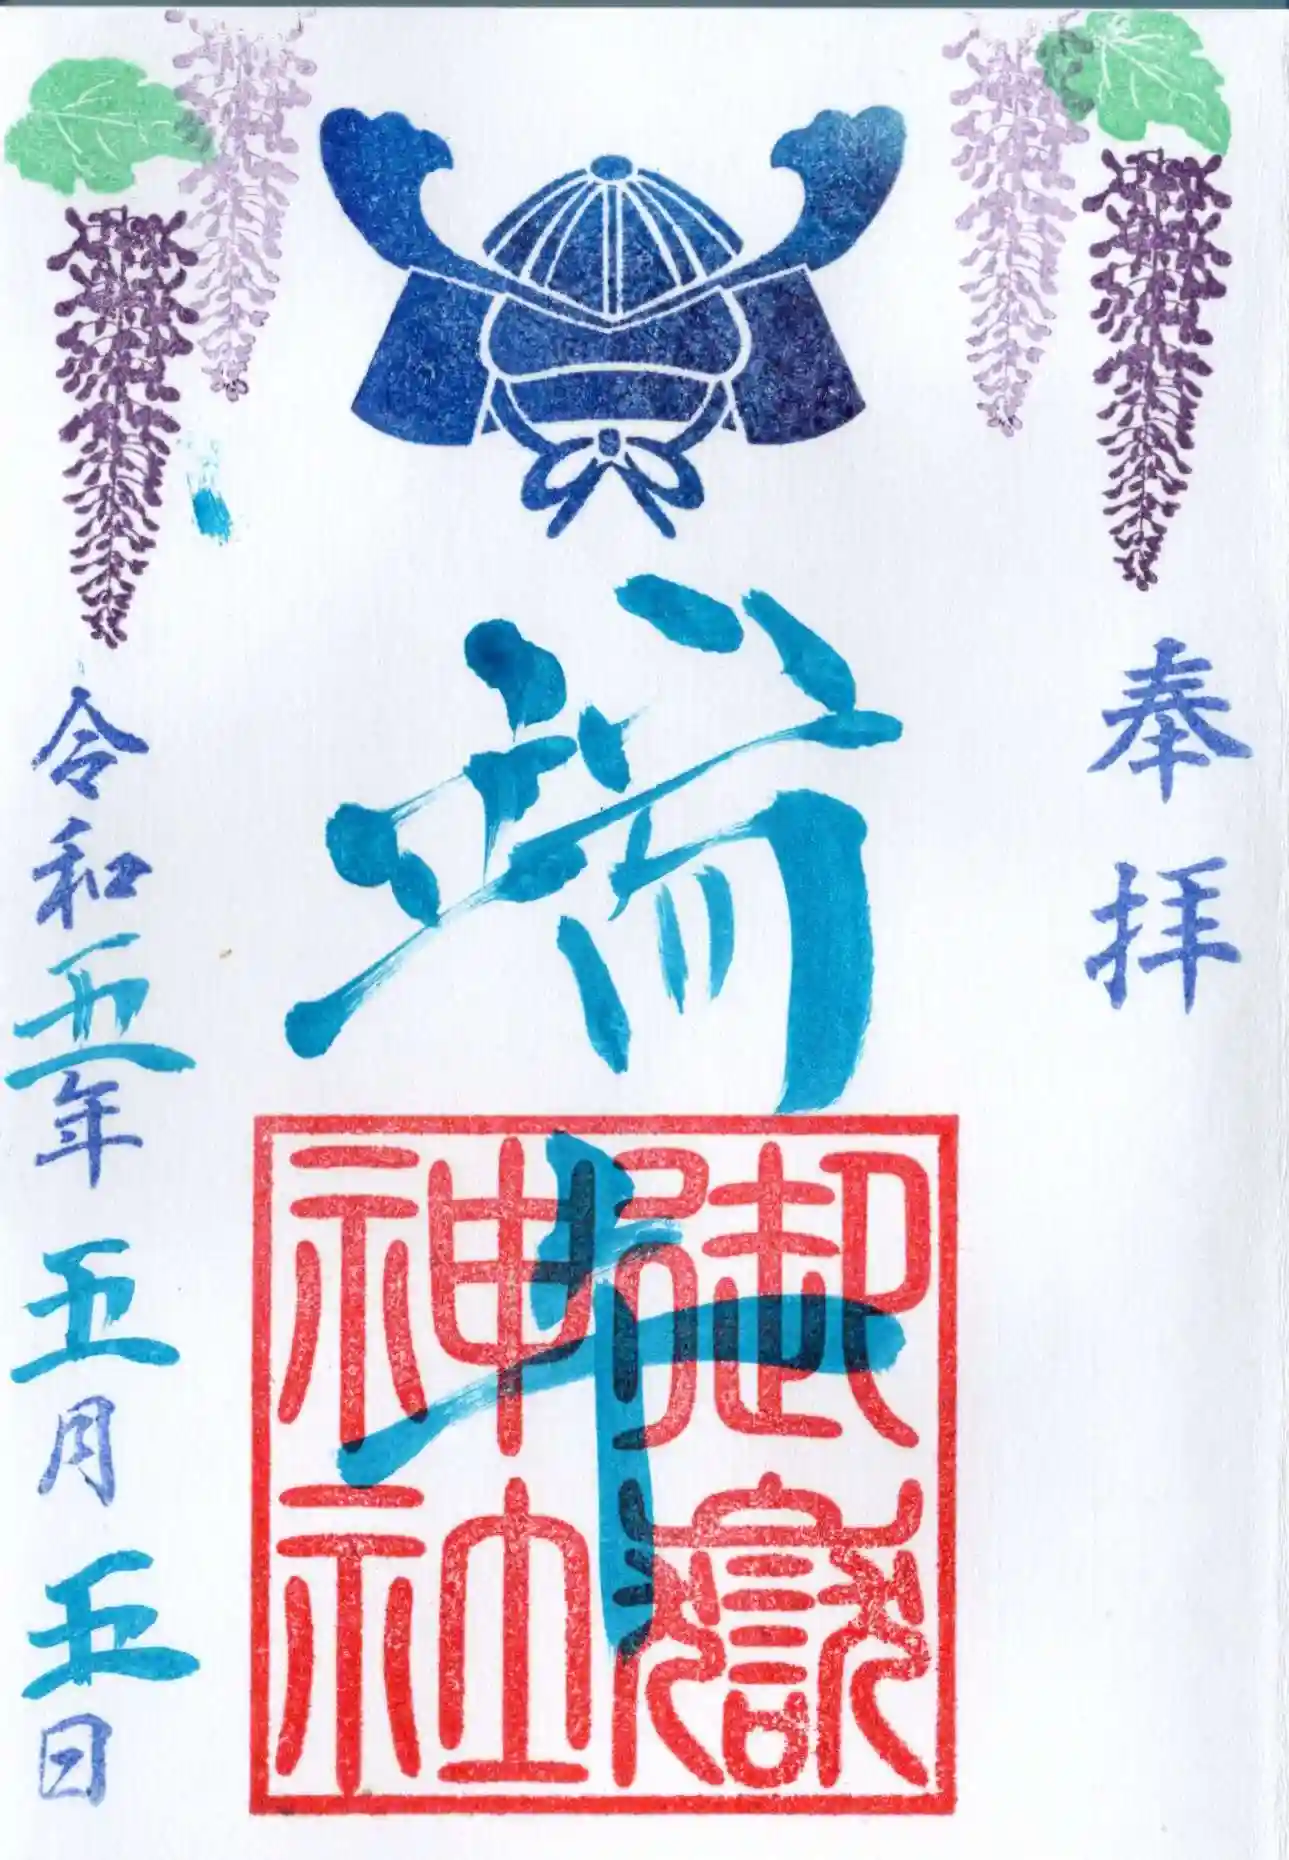 奉拝
端午
御嶽
神社
令和五年五月五日